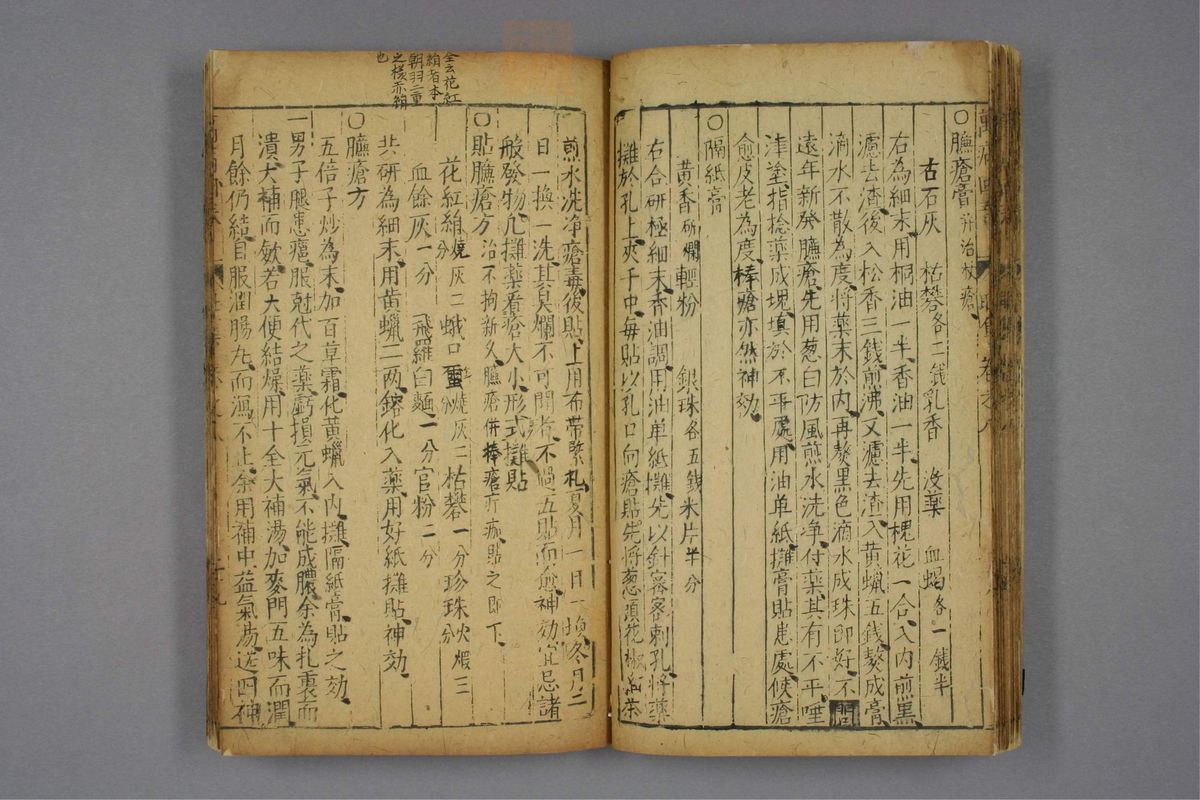 ○臁瘡膏 并治杖瘡
古石灰 枯礬各二錢 乳香 沒藥 血竭各一錢半
右為細末用桐油一半香油一半先用槐花一合入内煎黒
濾去渣後入松香三錢煎沸又濾去渣入黄蠟五錢熬成膏
滴水不散為度將藥末於内再熬黒色滴水成珠即好不問
遠年新發臁瘡先用葱白防風煎水洗净付藥其有不平唾
津塗指捻藥成塊填於不平處用油单紙攤膏貼患處候瘡
愈皮老為度棒瘡亦然神効
○隔紙膏
黄香研爛 輕粉 銀珠各五錢 米片半分
右合研極細末香油調用油单紙攤先以針密密刺孔將藥
攤於孔上夾于中每貼以孔口向瘡貼先將葱頭花椒細茶
煎水洗净瘡毒後貼上用布帶緊札夏月一日一換冬月二
日一換一洗其臭爛不可聞者不過五貼而愈神効宜忌諸
般發物凢攤藥看瘡大小形式攤貼
○貼臁瘡方 治不拘新久臁瘡併棒瘡亦㾏貼之即下
花紅絹燒灰二分 蛾口䘉燒灰二分 枯礬一分 珍珠火煅三分
血餘灰一分 飛羅白麵一分 官粉二分
共研為細末用黄蠟二两鎔化入藥用好紙攤貼神効
○臁瘡方
五倍子炒為末加百草霜化黄蠟入内攤隔紙膏貼之効
一男子腿患瘡服尅伐之藥虧損元氣不能成膿余為扎裏而
潰大補而歛若大便結燥用十全大補湯加麥門五味而潤
月餘仍結自服潤腸丸而瀉不止余用補中益氣湯送四神
全云花紅
絹者本
朝羽二重
之様赤絹
也